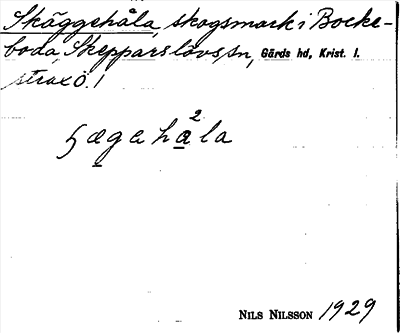 Skäggehåla, skogsmark i Bocke-
boda, Skepparslövs sn, Gärds hd, Krist. l.
strax ö. l
ɧægeha²la
NILS NILSSON 1929